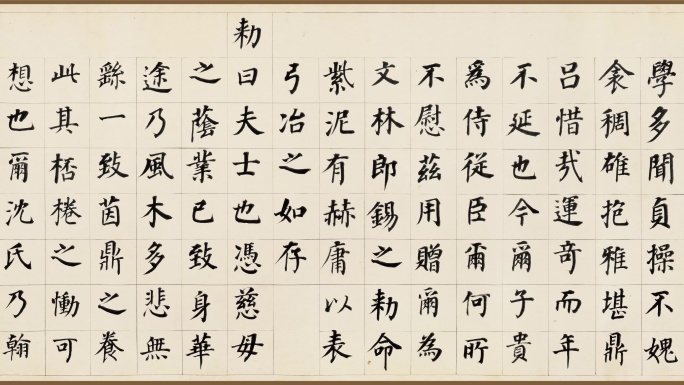 學多聞貞操不媿
衾稠雄抱雅堪鼎
呂惜哉運奇而年
不延也今爾子貴
爲侍從臣爾何所
不慰茲用贈爾為
文林郎錫之勅命
紫泥有赫庸以表
弓冶之如存
勅曰夫士也憑慈母
之蔭業已致身華
途乃風木多悲無
繇一致茵鼎之養
此其桮棬之慟可
想也爾沈氏乃翰